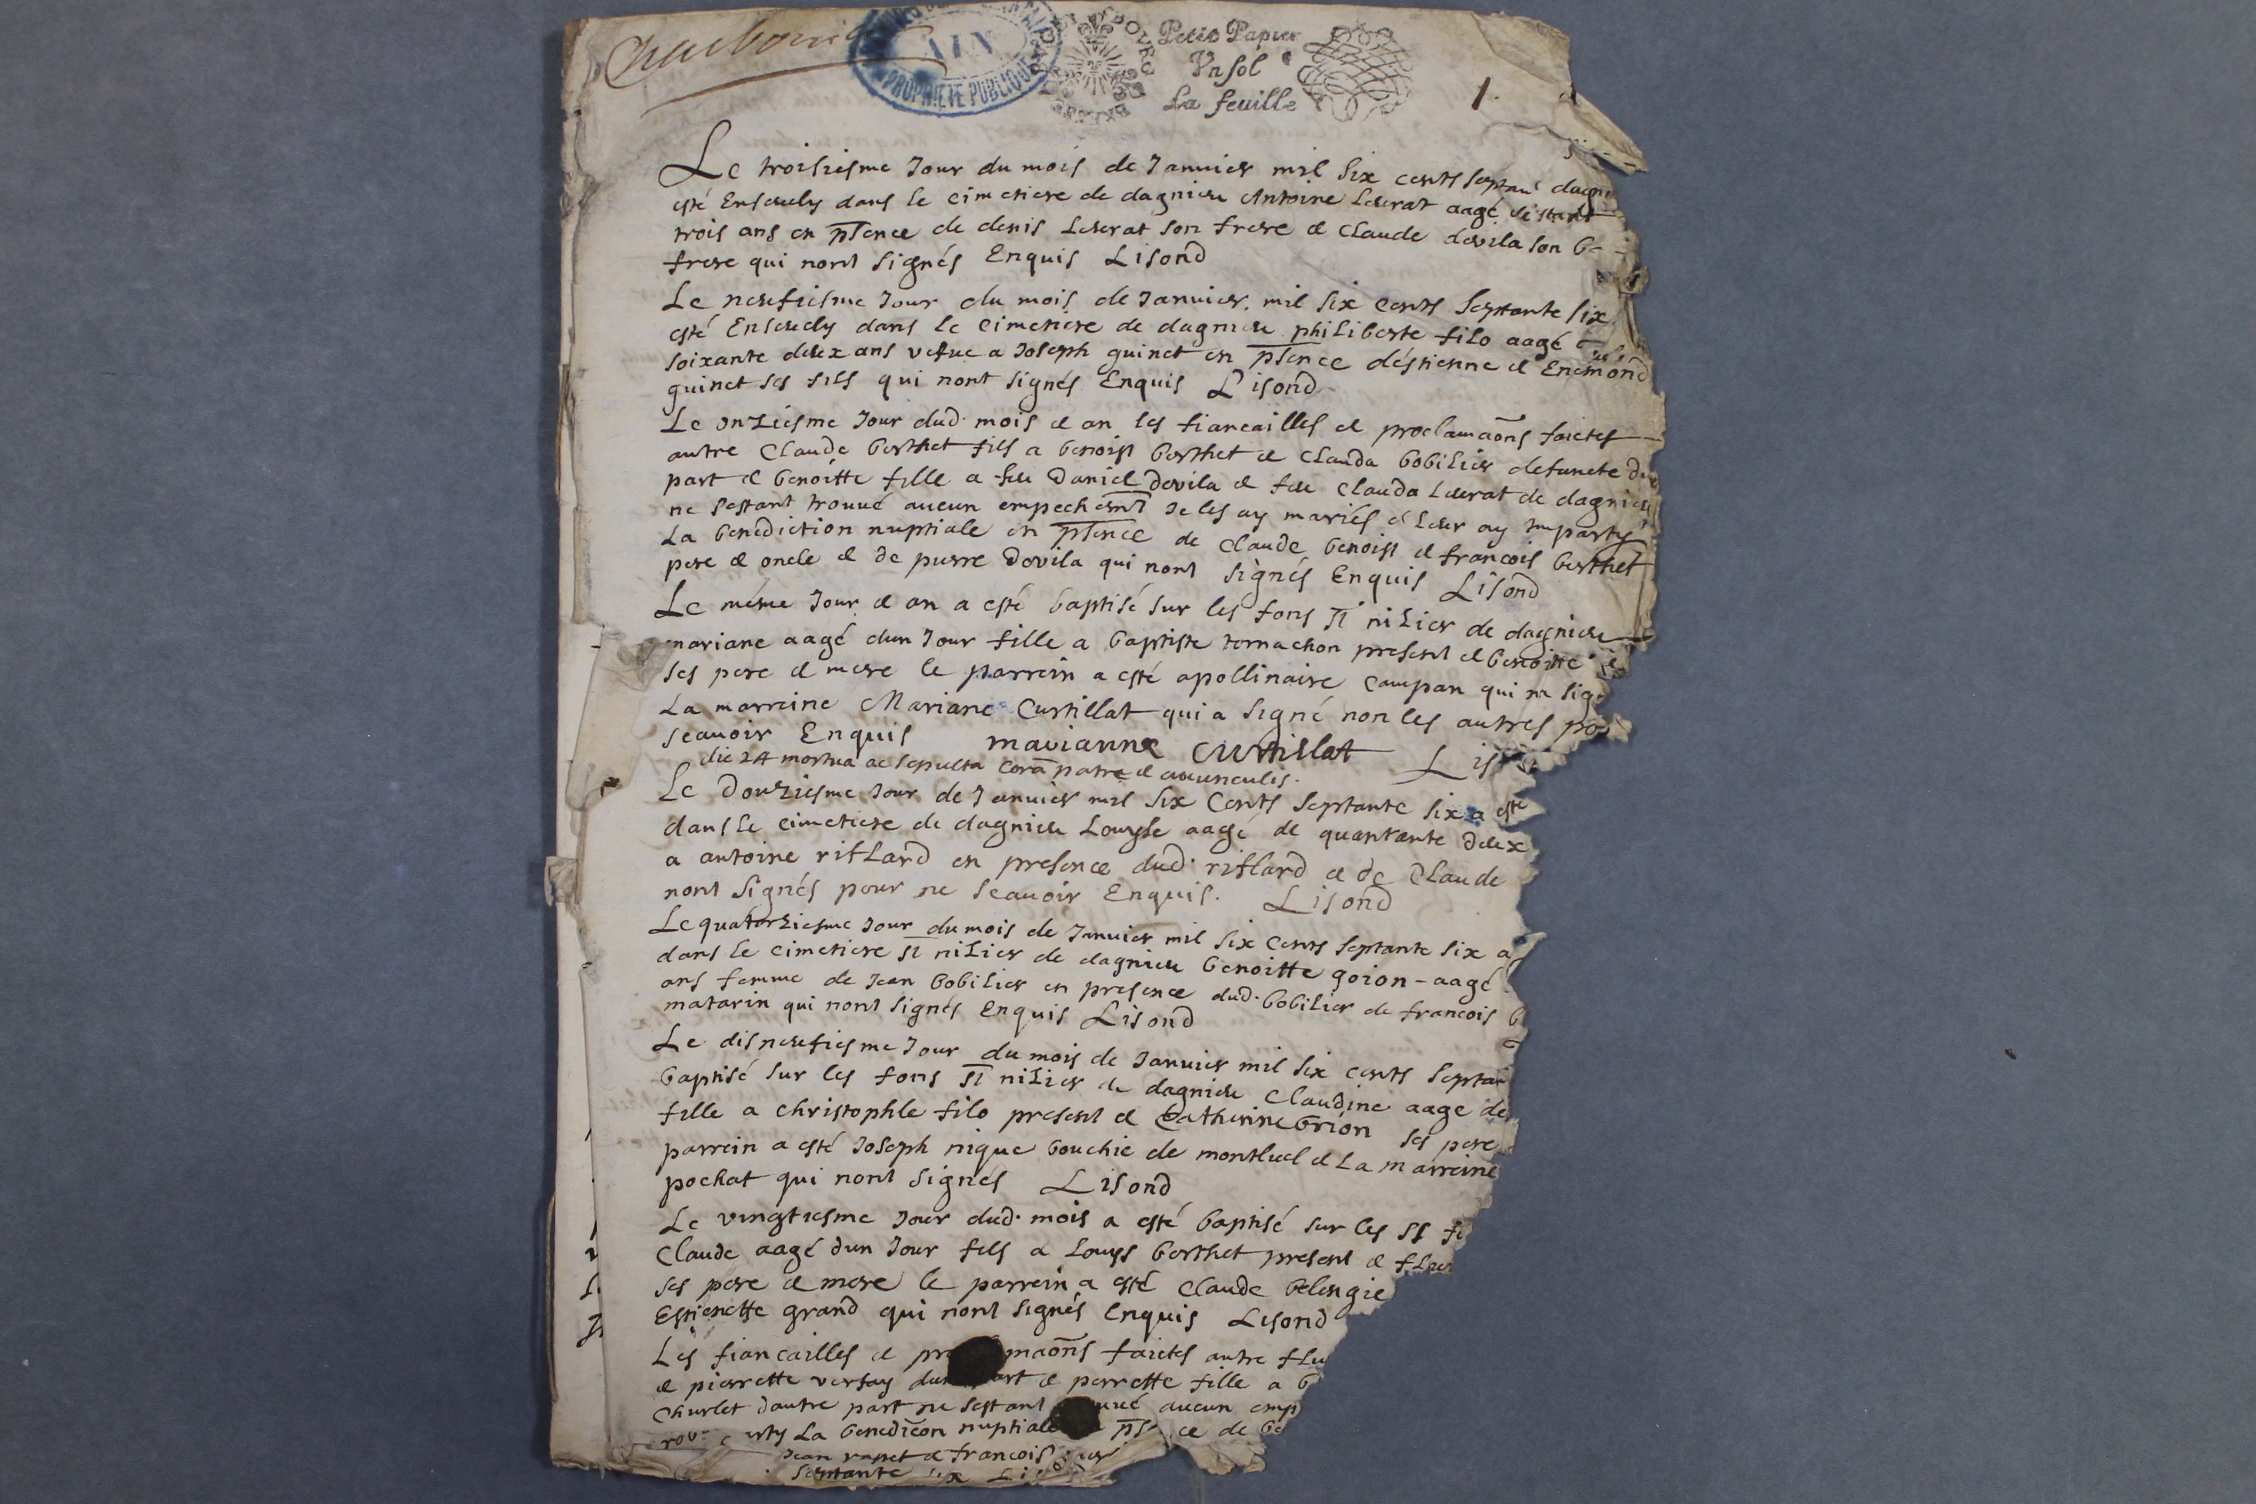 Petit Papier
Vn sol
La feuille
PROPRIETE PUBLIQUE
AIN
1
Le troisiesme Jour du mois de Januier mil six cents septan
esté Enseuely dans le cimetiere de dagnieu Antoine Leurat aagé
trois ans en pñce de denis Leurat son frere et Claude dévila son be
frere qui nont signés Enquis Lisond
Le neufiesme Jour du mois de Januier mil six cents septante six
esté Enseuely dans le cimetiere de dagnieu philiberte filo aagé
soixante deux ans vefue a Joseph guinet en pñce déstienne et Enemond
guinet ses fils qui nont signés Enquis Lisond
Le onziesme Jour dud. mois et an les fiancailles et proclamaõns faictes
autre Claude berthet fils a benoist berthet et Clauda bobilier defuncte
part et benoitte fille a feu Daniel Dévila et feu Clauda Leurat de dagnieu
ne sestant trouué aucun empechemt Je les ay mariés et leur ay Imparty
La benediction nuptiale en pñce de Claude, benoist et francois berthet
pere et oncle et de pierre Dévila qui nont signés Enquis Lisond
Le méme Jour et an a esté baptisé sur les fons St niZier de dagnieu
mariane aagé dun Jour fille a baptiste tornachon present et benoitte
ses pere et mere le parrein a esté apollinaire Campan qui na sig
La marreine Mariane Curtillat qui a signé non les autres po
scauoir Enquis marianne Curtillat Lis
die 24 mortua ac sepulta corã patre et auunculis.
Le Douziesme Jour de Januier mil six Cents septante six a esté
dans le cimetiere de dagnieu Louyse aagé de quarante deux
a antoine riflard en presence dud. riflard et de Claude
nont signés pour ne scauoir Enquis. Lisond
Le quatorziesme Jour du mois de Januier mil six cents septante six a
dans le cimetiere St niZier de dagnieu benoitte goion - aagé
ans femme de Jean bobilier en presence dud. bobilier de francois
matarin qui nont signés Enquis Lisond
Le disneufiesme Jour du mois de Januier mil six cents septan
baptisé sur les fons St niZier de dagnieu Claudine aagé de
fille a christophle filo present et Catherine brion ses pere
parrein a esté Joseph nique bouchie de montluel et La marreine
pochat qui nont signés Lisond
Le vingtiesme Jour dud. mois a esté baptisé sur les SS f
Claude aagé dun Jour fils a Louys berthet present et fleu
ses pere et mere le parrein a esté Claude belengie
Estienette grand qui nont signés Enquis Lisond
Les fiancailles et pr maõns faictes autre fleu
et pierrette versay dun art et perrette fille a b
Churlet dautre part ne sestant ué aucun emp
La benedicõn nuptiale pñce de be
Jean rapet et francois
septante six Lis